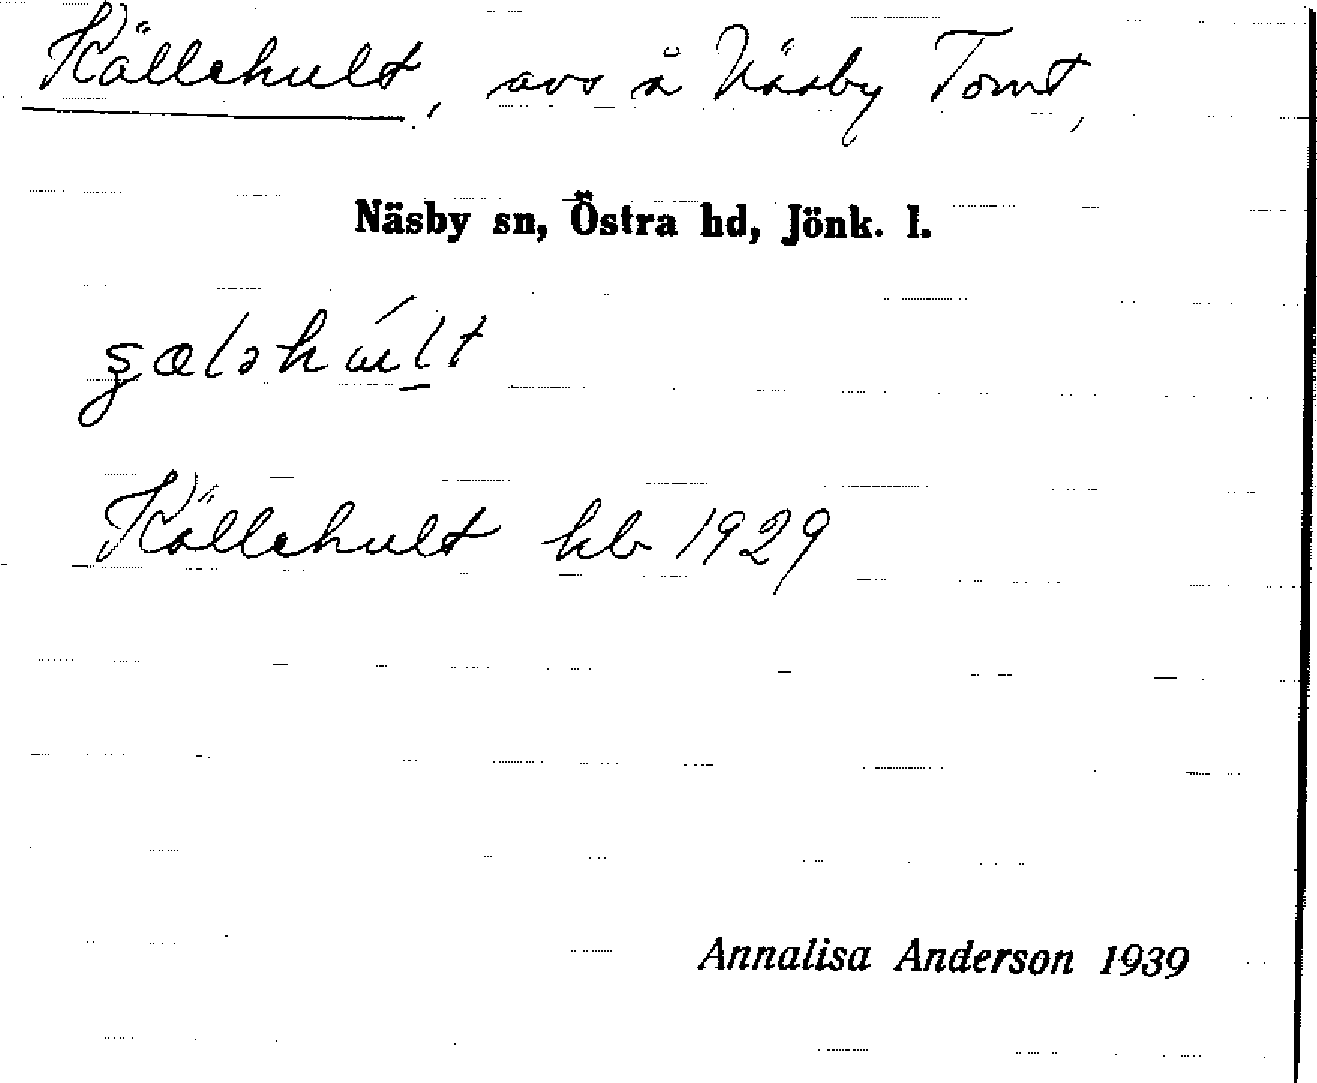 Källehult, avs å Näsby Tomt,
Näsby sn, Östra hd, Jönk. l.
Källehult kb 1929
Annalisa Anderson 1939